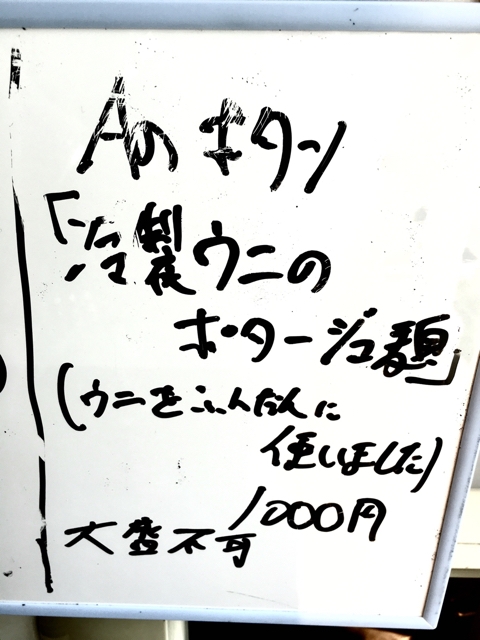 Aのボタン
「冷製ウニの
ポタージュ麺」
(ウニをふんだんに
使いました)
1000円
大盛不可